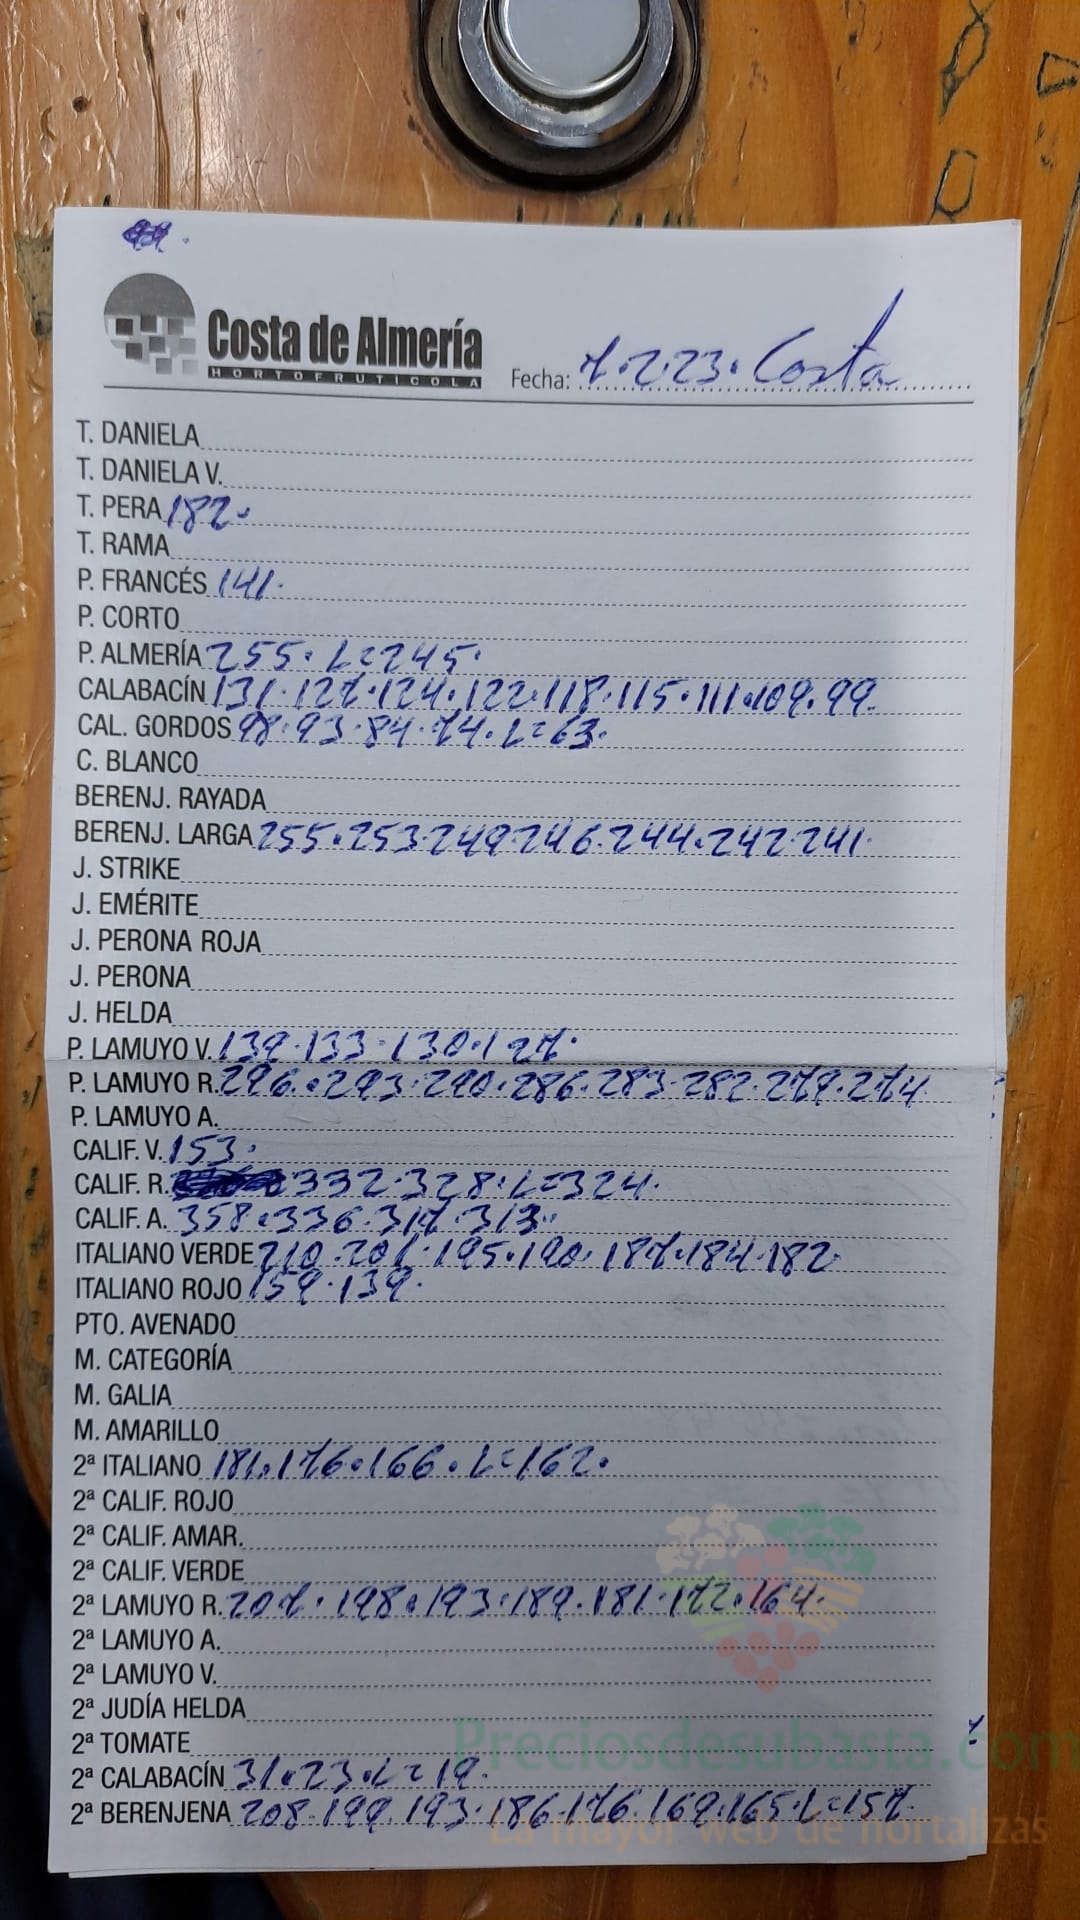 Costa de Almería
HORTOFRUTICOLA
Fecha: 7.2.23. Costa
T. DANIELA
T. DANIELA V.
T. PERA 182.
T. RAMA
P. FRANCÉS 141.
P. CORTO
P. ALMERÍA 255. L=245.
CALABACÍN 131.127.124.122.118.115.111.109.99.
CAL. GORDOS 98.93.84.74.L=63.
C. BLANCO
BERENJ. RAYADA
BERENJ. LARGA 255.253.249.246.244.242.241.
J. STRIKE
J. EMÉRITE
J. PERONA ROJA
J. PERONA
J. HELDA
P. LAMUYO V. 139.133.130.127.
P. LAMUYO R. 296.293.290.286.283.282.279.274.
P. LAMUYO A.
CALIF. V. 153.
CALIF. R. 332.328.L=324.
CALIF. A. 358.336.317.313.
ITALIANO VERDE 210.201.195.190.187.184.182.
ITALIANO ROJO 159.139.
PTO. AVENADO
M. CATEGORÍA
M. GALIA
M. AMARILLO
2ª ITALIANO 181.176.166.L=162.
2ª CALIF. ROJO
2ª CALIF. AMAR.
2ª CALIF. VERDE
2ª LAMUYO R. 207.198.193.189.181.172.164.
2ª LAMUYO A.
2ª LAMUYO V.
2ª JUDÍA HELDA
2ª TOMATE
Preciosdesubasta.com
2ª CALABACÍN 31.23.L=19.
2ª BERENJENA 208.199.193.186.176.169.165.L=157.
La mayor web de hortalizas